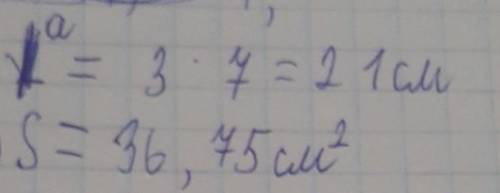 a = 3 · 7 = 21 см
S = 36,75 см²